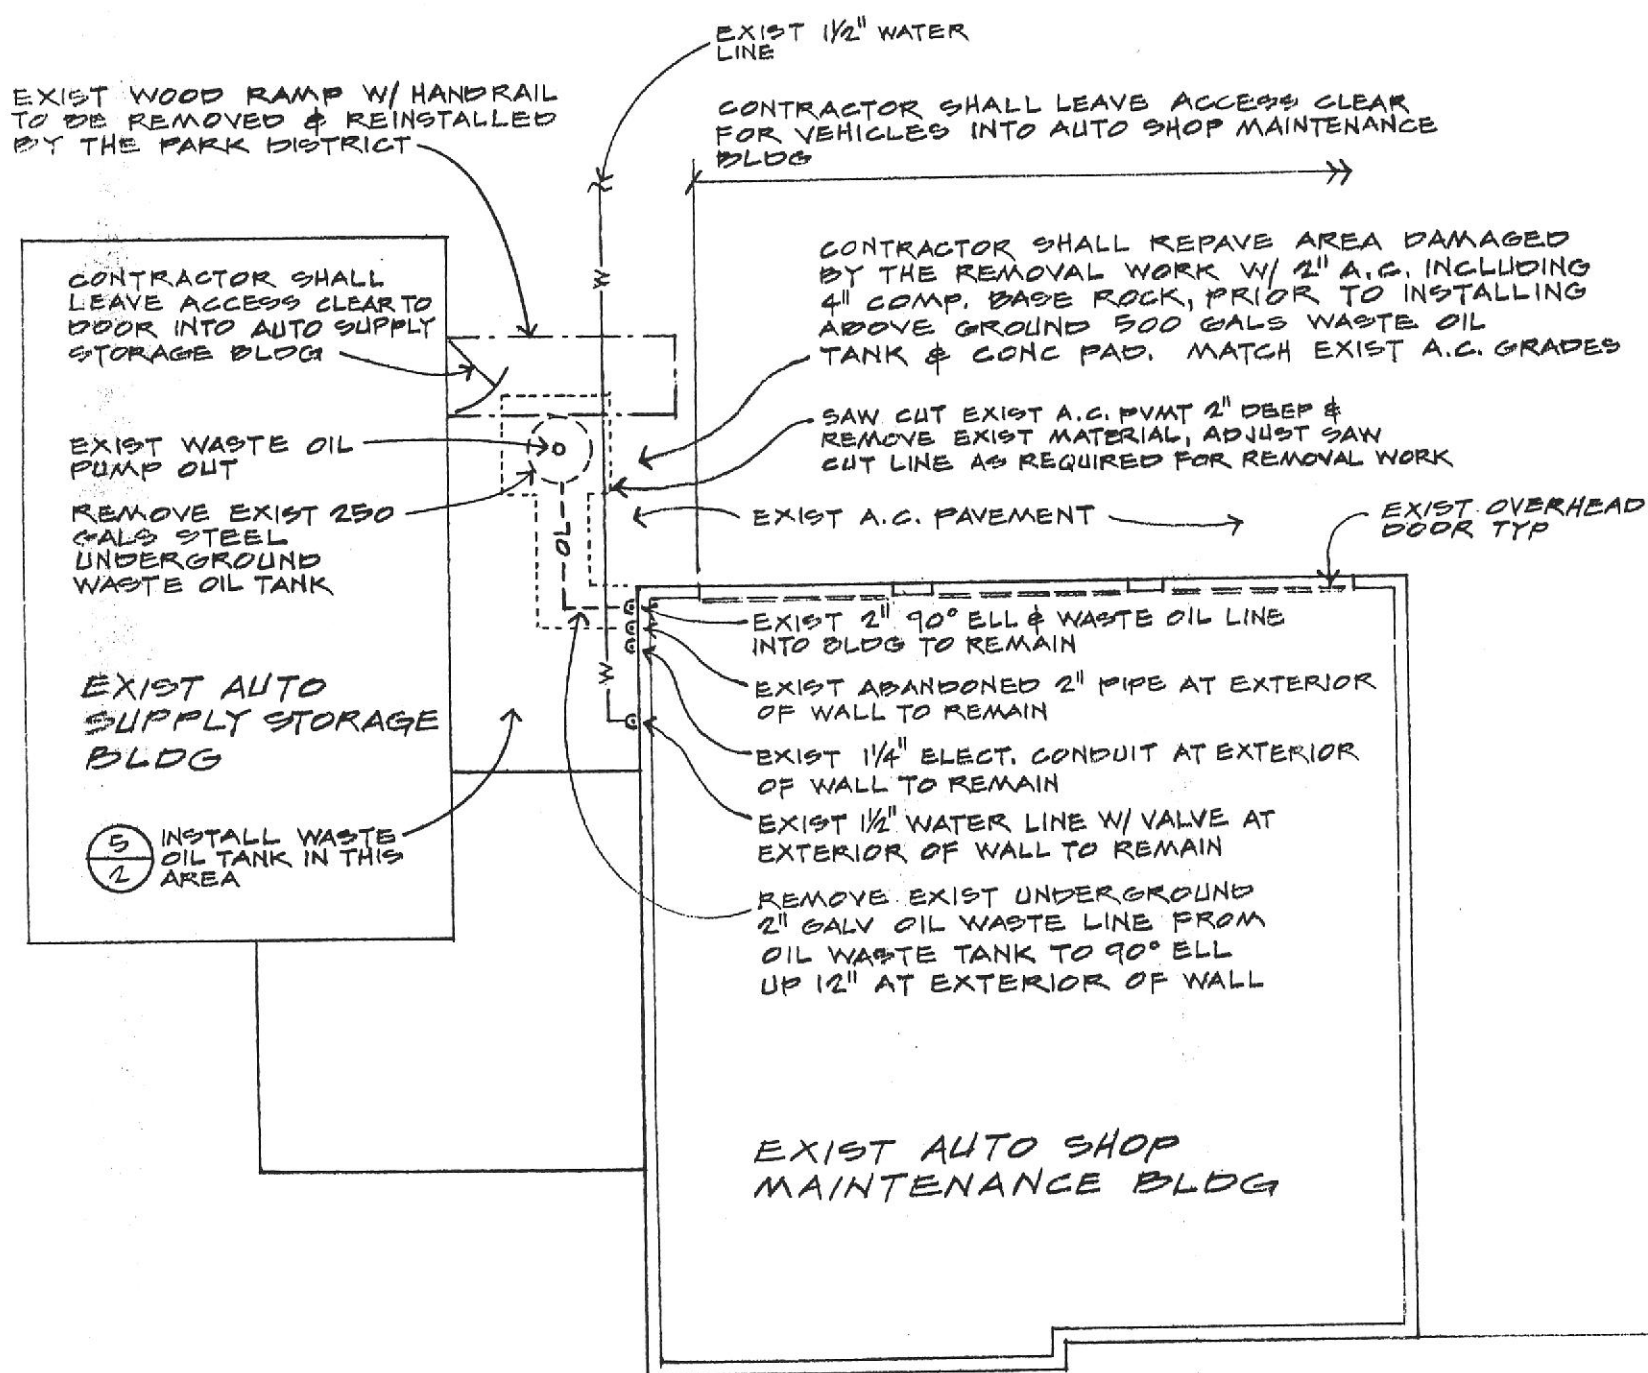 EXIST 1½" WATER
LINE
EXIST WOOD RAMP W/ HANDRAIL
TO BE REMOVED & REINSTALLED
BY THE PARK DISTRICT
CONTRACTOR SHALL LEAVE ACCESS CLEAR
FOR VEHICLES INTO AUTO SHOP MAINTENANCE
BLDG
CONTRACTOR SHALL
LEAVE ACCESS CLEAR TO
DOOR INTO AUTO SUPPLY
STORAGE BLDG
W
CONTRACTOR SHALL REPAVE AREA DAMAGED
BY THE REMOVAL WORK W/ 2" A.C. INCLUDING
4" COMP. BASE ROCK, PRIOR TO INSTALLING
ABOVE GROUND 500 GALS WASTE OIL
TANK & CONC PAD. MATCH EXIST A.C. GRADES
SAW CUT EXIST A.C. PVMT 2" DEEP &
REMOVE EXIST MATERIAL, ADJUST SAW
CUT LINE AS REQUIRED FOR REMOVAL WORK
EXIST WASTE OIL
PUMP OUT
REMOVE EXIST 250
GALS STEEL
UNDERGROUND
WASTE OIL TANK
OL
EXIST A.C. PAVEMENT
EXIST OVERHEAD
DOOR TYP
EXIST 2" 90° ELL & WASTE OIL LINE
INTO BLDG TO REMAIN
W
EXIST ABANDONED 2" PIPE AT EXTERIOR
OF WALL TO REMAIN
EXIST 1¼" ELECT. CONDUIT AT EXTERIOR
OF WALL TO REMAIN
EXIST 1½" WATER LINE W/ VALVE AT
EXTERIOR OF WALL TO REMAIN
REMOVE EXIST UNDERGROUND
2" GALV OIL WASTE LINE FROM
OIL WASTE TANK TO 90° ELL
UP 12" AT EXTERIOR OF WALL
EXIST AUTO
SUPPLY STORAGE
BLDG
5
2
INSTALL WASTE
OIL TANK IN THIS
AREA
EXIST AUTO SHOP
MAINTENANCE BLDG